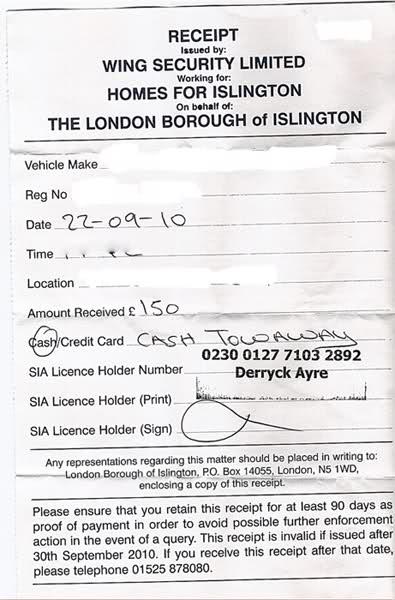 RECEIPT
Issued by:
WING SECURITY LIMITED
Working for:
HOMES FOR ISLINGTON
On behalf of:
THE LONDON BOROUGH of ISLINGTON
Vehicle Make
Reg No
Date 22-09-10
Time
Location
Amount Received £ 150
Cash/Credit Card CASH TOWAWAY
0230 0127 7103 2892
SIA Licence Holder Number Derryck Ayre
SIA Licence Holder (Print)
SIA Licence Holder (Sign)
Any representations regarding this matter should be placed in writing to:
London Borough of Islington, P.O. Box 14055, London, N5 1WD,
enclosing a copy of this receipt.
Please ensure that you retain this receipt for at least 90 days as
proof of payment in order to avoid possible further enforcement
action in the event of a query. This receipt is invalid if issued after
30th September 2010. If you receive this receipt after that date,
please telephone 01525 878080.